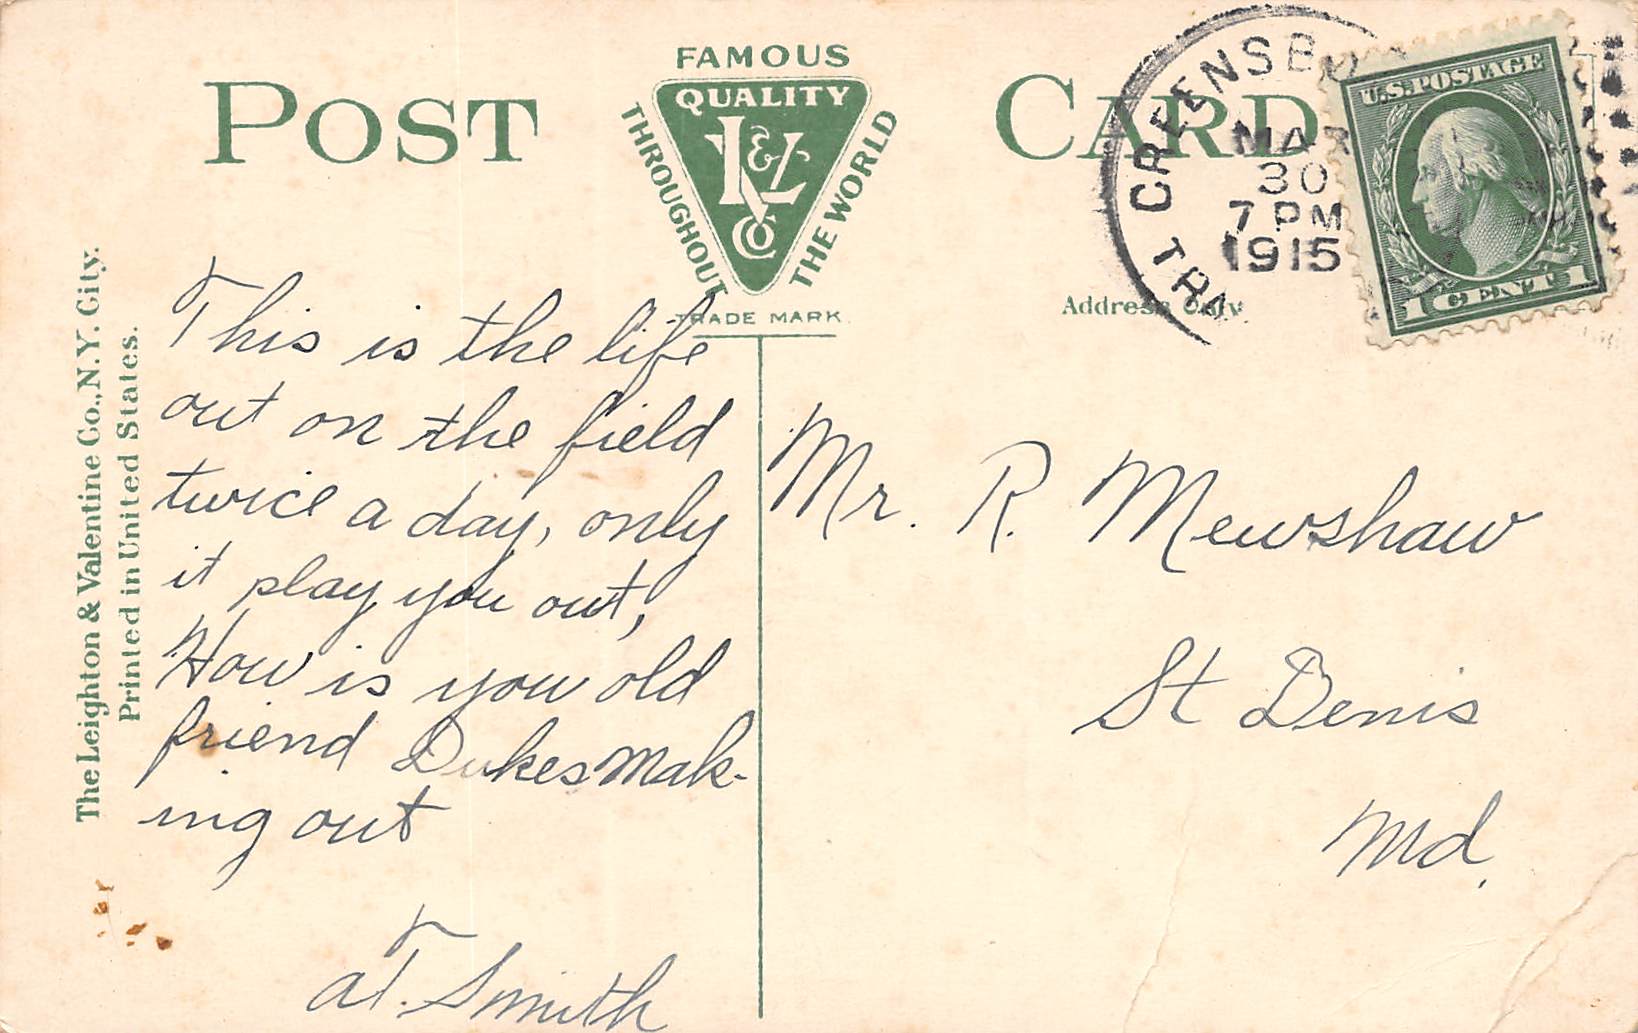 POST CARD
FAMOUS
QUALITY
THROUGHOUT
THE WORLD
L&V
Co
TRADE MARK
Address Only
MAR
30
7 PM
1915
U.S.POSTAGE
1 CENT 1
The Leighton & Valentine Co., N.Y. City.
Printed in United States.
This is the life
out on the field
twice a day, only
it play you out,
How is your old
friend Dukes Mak-
ing out
aT. Smith
Mr. R. Mewshaw
St Denis
Md.